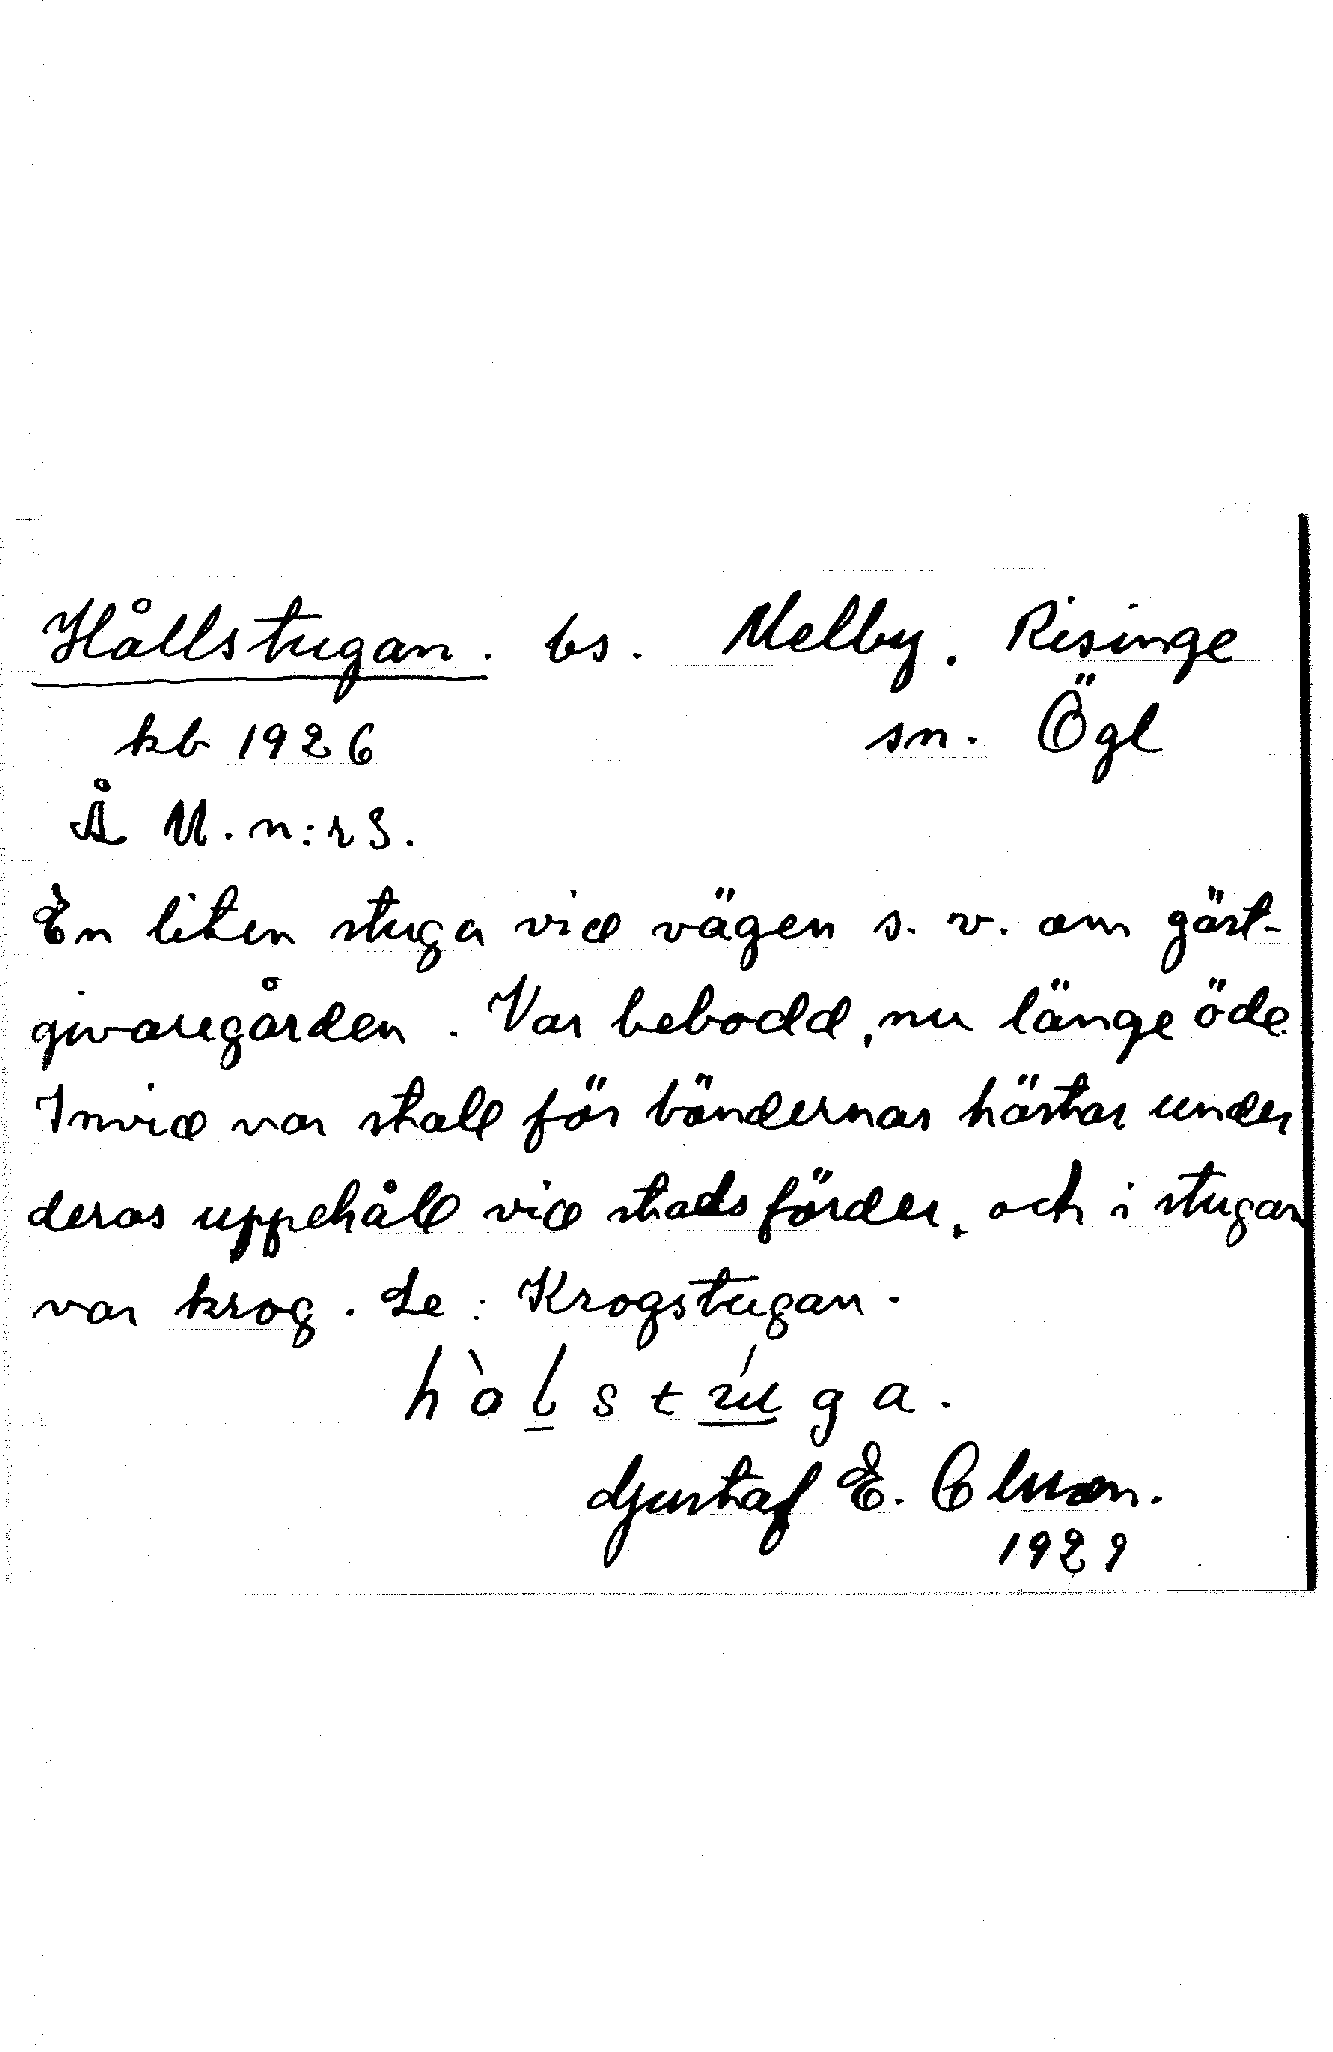 Hållstugan. bs. Melby. Risinge
kb 1926 sn. Ögl
Å M. n:r 3.
En liten stuga vid vägen s. v. om gäst-
givaregården. Var bebodd, nu länge öde
Invid var stall för böndernas hästar under
deras uppehåll vid stadsfärder, och i stugan
var krog. Se: Krogstugan.
hòlstúga.
Gustaf E. Olsson.
1929